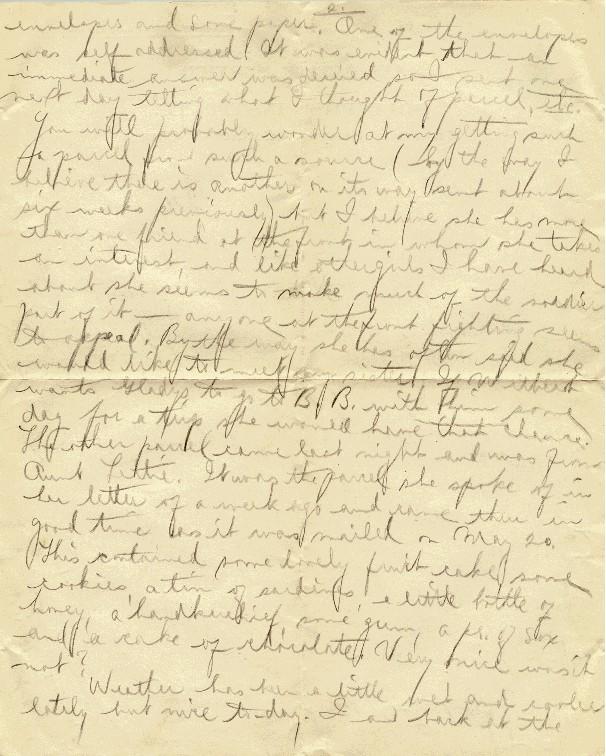 2.
envelopes and some paper. One of the envelopes
was self addressed. It was evident that an
immediate answer was desired so I sent one
next day telling what I thought of parcel, etc.
You will probably wonder at my getting such
a parcel from such a source (by the way I
believe there is another on its way sent about
six weeks previously) but I believe she has more
than one friend at the front in whom she takes
an interest, and like other girls I have heard
about she seems to make much of the soldier
part of it — anyone at the front fighting seems
to appeal. By the way she has often said she
would like to meet my sister. If
wants Gladys to go to B. B. with him some
day for a trip she would have that chance.
The other parcel came last night and was from
Aunt Lettie. It was the parcel she spoke of in
her letter of a week ago and came thru in
good time as it was mailed on May 20.
This contained some lovely fruit cake, some
cookies, a tin of sardines, a little bottle of
honey, a handkerchief, some gum, a pr. of sox
and a cake of chocolate. Very nice wasn't
not?
Weather has been a little wet and cooler
lately but nice to-day. I am back at the